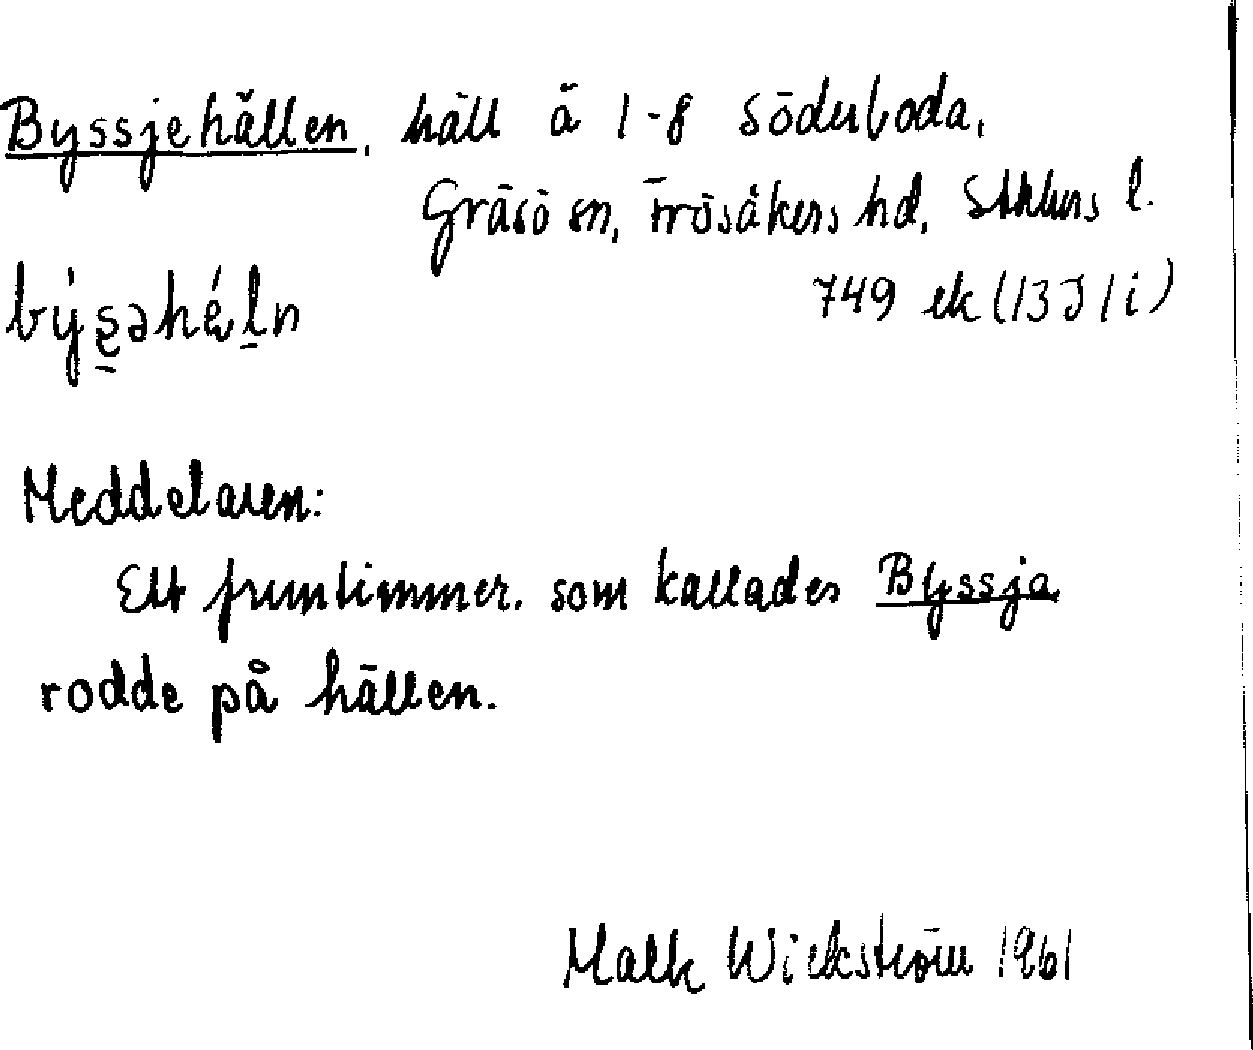 Byssjehällen, häll å 1-8 Söderboda,
Gräsö sn, Frösåkers hd, Sthlms l.
býs̱əhéḻn 749 ek (13 I 1 i)
Meddelaren:
Ett fruntimmer. som kallades Byssja
rodde på hällen.
Maik Wickström 1961